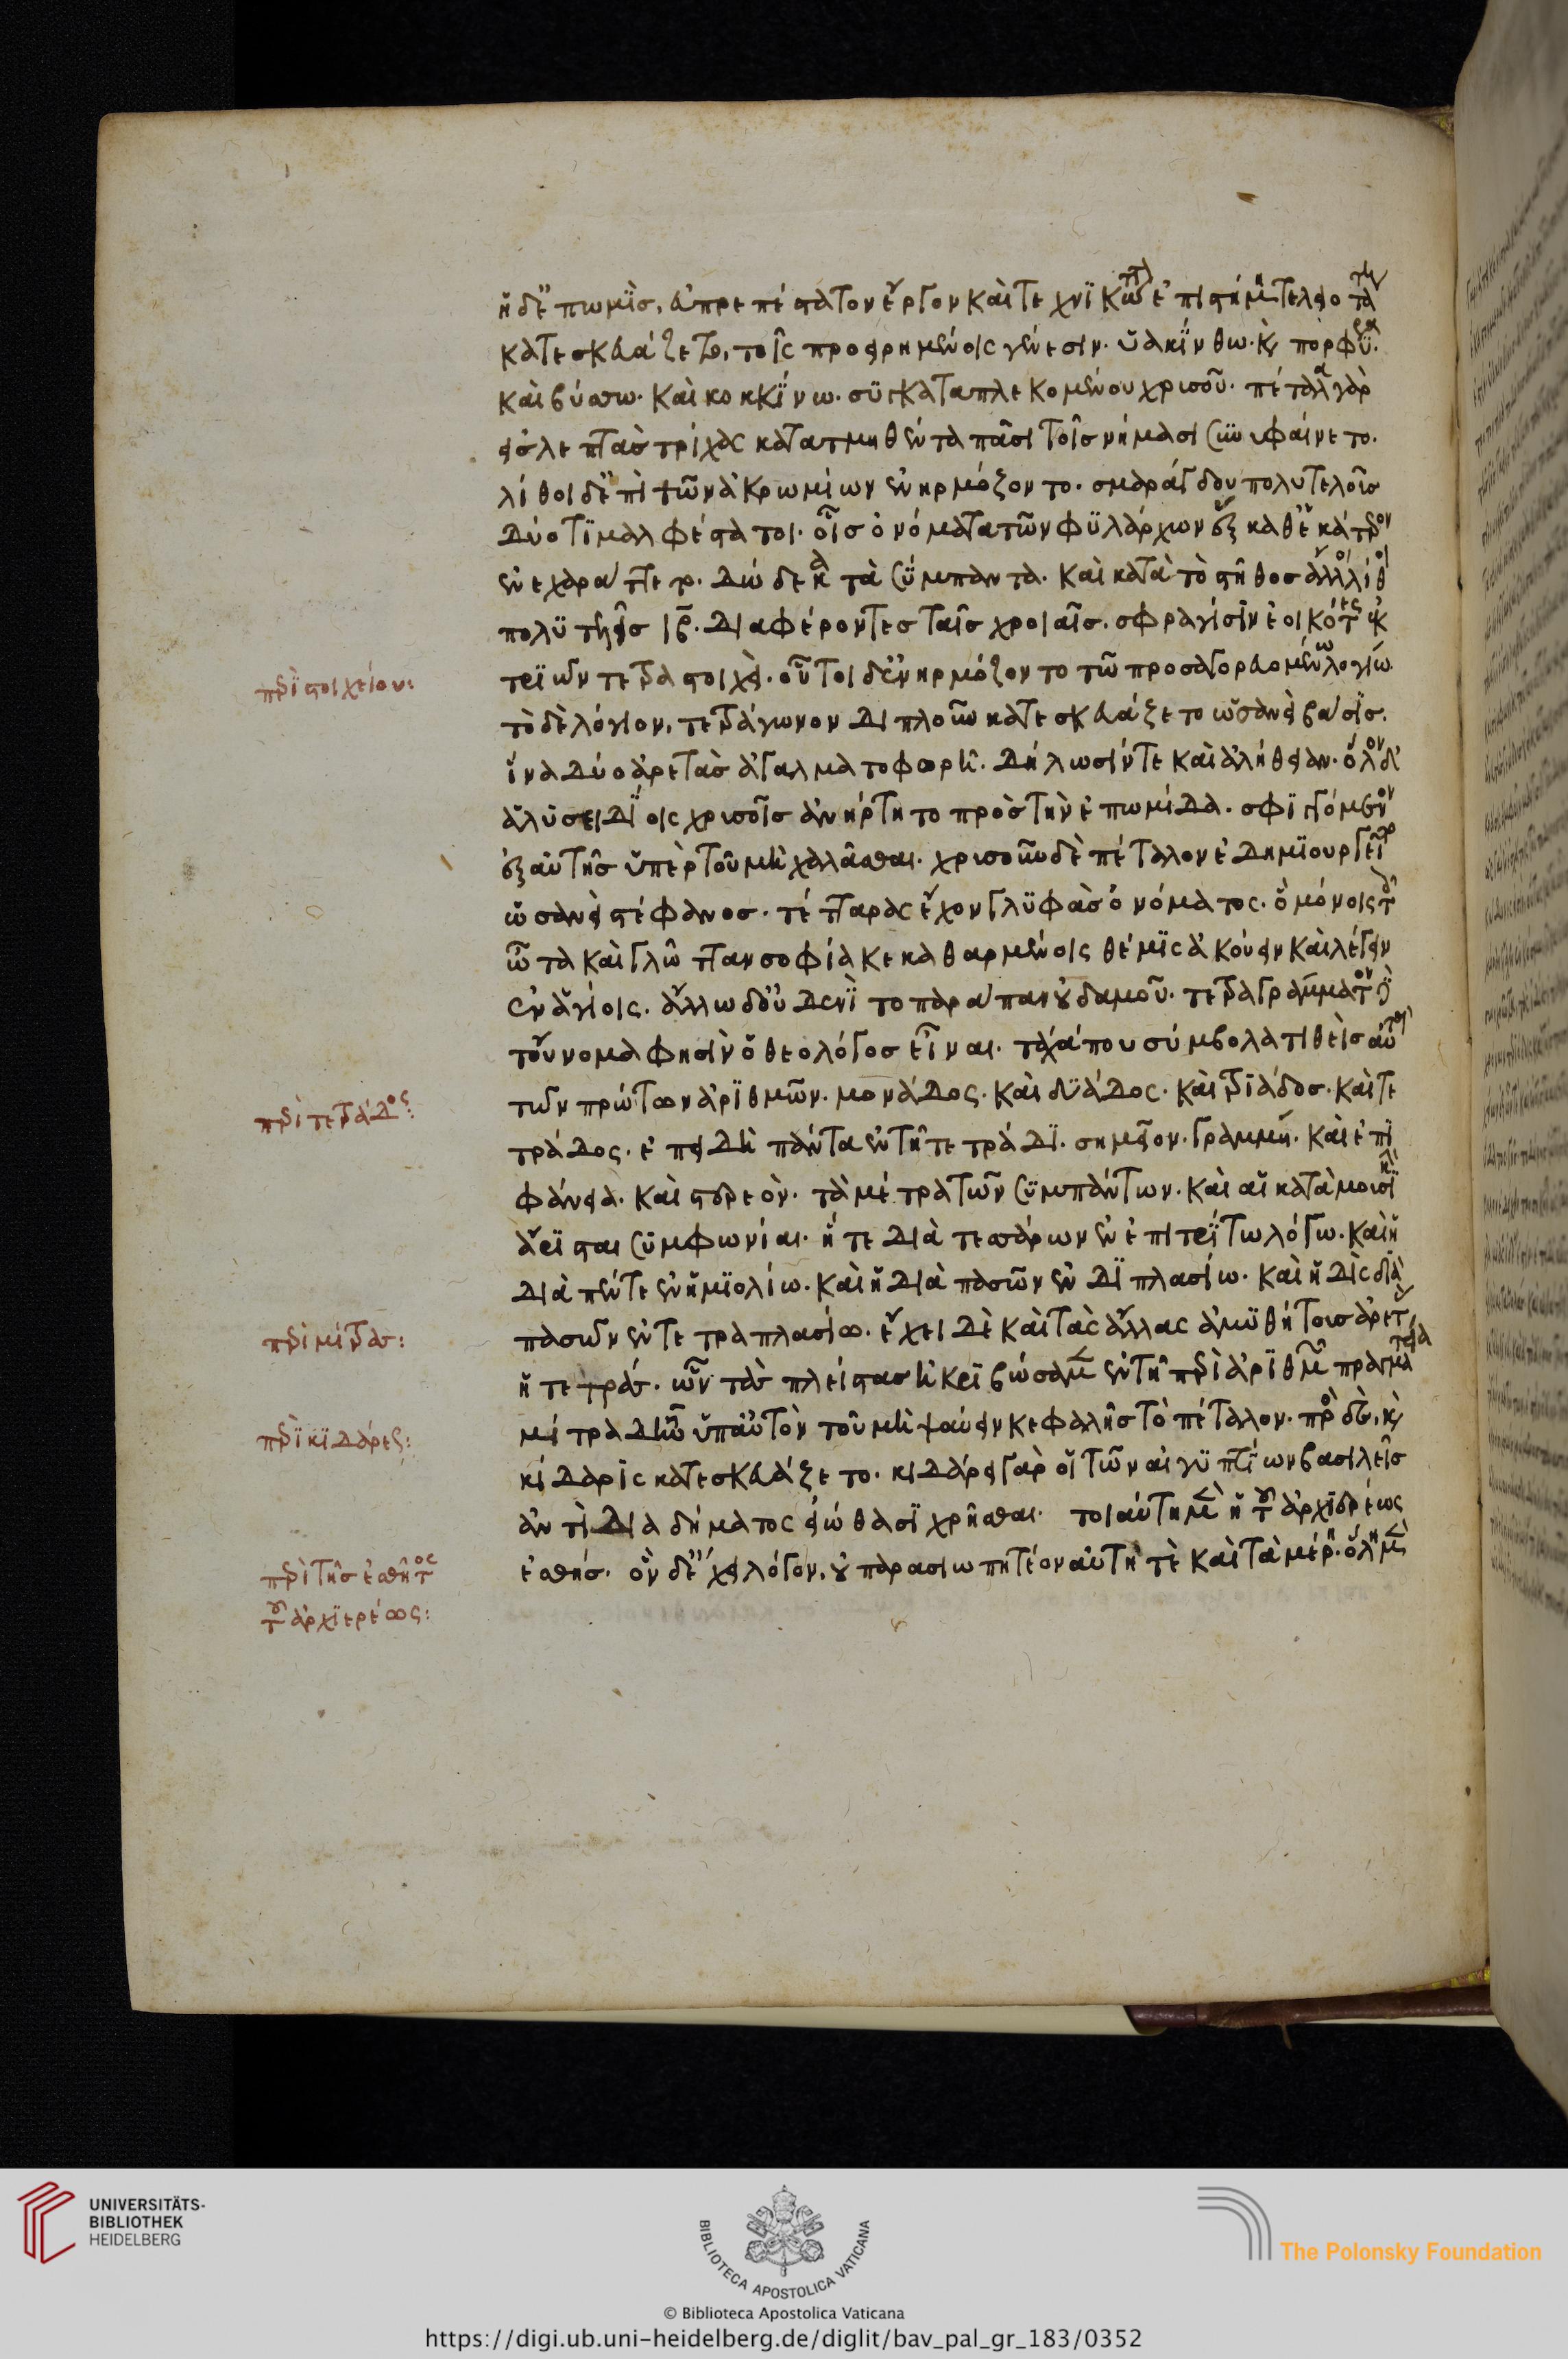 ἡ δ' ἐπωμὶς, ἐκπρεπέστατον ἔργον καὶ τεχνικώτατον ἐπιστήμη τελειοτάτη
κατεσκευάζετο, τοῖς προειρημένοις γένεσιν. ὑακίνθω. καὶ πορφύρα.
καὶ βύσσω. καὶ κοκκίνω. συγκαταπλεκομένου χρυσοῦ. πέταλα γὰρ
εἰς λεπτὰς τρίχας κατατμηθέντα πᾶσι τοῖς νήμασι συνυφαίνετο.
λίθοι δ' ἐπὶ τῶν ἀκρωμίων ἐνηρμόζοντο. σμαράγδου πολυτελοῦς
δύο τιμαλφέστατοι. οἷς ὀνόματα τῶν φυλάρχων ἓξ καθ' ἑκάτερον
ἐνεχαράττετο. δώδεκα τὰ σύμπαντα. καὶ κατὰ τὸ στῆθος ἄλλοι λίθοι
πολυτελεῖς ιβ. διαφέροντες ταῖς χροιαῖς. σφραγίσιν ἐοικότες ἐκ
τριῶν τετραστοιχεὶ. οὗτοι δ' ἐνηρμόζοντο τῶ προσαγορευομένω λογίω
τὸ δὲ λόγιον, τετράγωνον διπλοῦν κατεσκευάζετο ὡσανεὶ βάσις.
ἵνα δύο ἀρετὰς ἀγαλματοφορῆ. δήλωσίν τε καὶ ἀλήθειαν. ὅλον δ'
ἁλυσειδίοις χρυσοῖς ἀνήρτητο πρὸς τὴν ἐπωμίδα. σφιγγόμενον
ἐξ αὐτῆς ὑπὲρ τοῦ μὴ χαλᾶσθαι. χρυσοῦν δὲ πέταλον ἐδημιουργεῖτο
ὡσανεὶ στέφανος. τέτταρας ἔχον γλυφὰς ὀνόματος. ὃ μόνοις τοῖς
ὦτα καὶ γλῶτταν σοφία κεκαθαρμένοις θέμις ἀκούειν καὶ λέγειν
ἐν ἁγίοις. ἄλλω δ' οὐδενὶ τοπαράπαν οὐδαμοῦ. τετραγράμματον δὲ
τοὔνομα φησὶν ὁ θεολόγος εἶναι. τάχα που σύμβολα τιθεὶς αὐτὸ
τῶν πρώτων ἀριθμῶν. μονάδος. καὶ δυάδος. καὶ τριάδος. καὶ τε
τράδος. ἐπειδὴ πάντα ἐν τῆ τετράδι. σημεῖον. γραμμὴ. καὶ ἐπι
φάνεια. καὶ στερεὸν. τὰ μέτρα τῶν συμπάντων. καὶ αἱ κατὰ μουσικὴν
ἄρισται συμφωνίαι. ἥ τε διὰ τεσσάρων ἐν ἐπιτρίτω λόγω. καὶ ἡ
διὰ πέντε ἐν ἡμιολίω. καὶ ἡ διὰ πασῶν ἐν διπλασίω. καὶ ἡ δὶς διὰ
πασῶν ἐν τετραπλασίω. ἔχει δὲ καὶ τὰς ἄλλας ἀμυθήτους ἀρετὰς
ἡ τετράς. ὧν τὰς πλείστας ἠκριβώσαμεν ἐν τῆ περὶ ἀριθμῶν πραγματεία
μίτρα δ' ἦν ὑπ' αὐτὸν τοῦ μὴ ψαύειν κεφαλῆς τὸ πέταλον. πρὸς δὲ, καὶ
κίδαρις κατεσκευάζετο. κιδάρει γὰρ οἱ τῶν αἰγυπτίων βασιλεῖς
ἀντὶ διαδήματος εἰώθασι χρῆσθαι. τοιαύτη μὲν ἡ τοῦ ἀρχιερέως
ἐσθής. ὃν δ' ἔχει λόγον, οὐ παρασιωπητέον αὐτή τε καὶ τὰ μέρη. ὅλη μὲν
περὶ στοιχείου:
περὶ τετράδος:
περὶ μίτρας:
περὶ κιδάρεως:
περὶ τῆς ἐσθῆτος
τοῦ ἀρχιερέως:
UNIVERSITÄTS-
BIBLIOTHEK
HEIDELBERG
BIBLIOTECA APOSTOLICA VATICANA
The Polonsky Foundation
© Biblioteca Apostolica Vaticana
https://digi.ub.uni-heidelberg.de/diglit/bav_pal_gr_183/0352